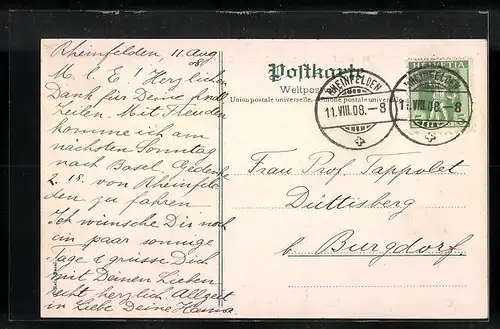 Rheinfelden, 11. Aug
08
M. l. E! Herzlichen
Dank für Deine frdl.
Zeilen. Mit Freuden
komme ich am
nächsten Sonntag
nach Basel. Gedenke
2.18. von Rheinfel
den zu fahren
Ich wünsche Dir noch
ein paar sonnige
Tage & grüsse Dich
mit Deinen Lieben
recht herzlich. Allzeit
in Liebe Deine Hanna
Postkarte
Weltpost
Union postale universelle. postale universale
RHEINFELDEN
11.VIII.08.–8
RHEINFELDEN
11.VIII.08.–8
HELVETIA
5 5
Frau Prof. Tappolet
Düttisberg
b. Burgdorf.